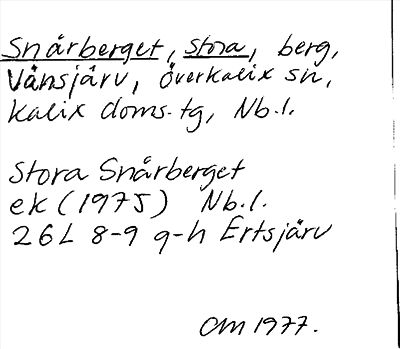 Snårberget, Stora, berg,
Vånsjärv, Överkalix sn,
Kalix doms.tg, Nb.l.
Stora Snårberget
ek (1975) Nb.l.
26L 8-9 g-h Ertsjärv
OM 1977.